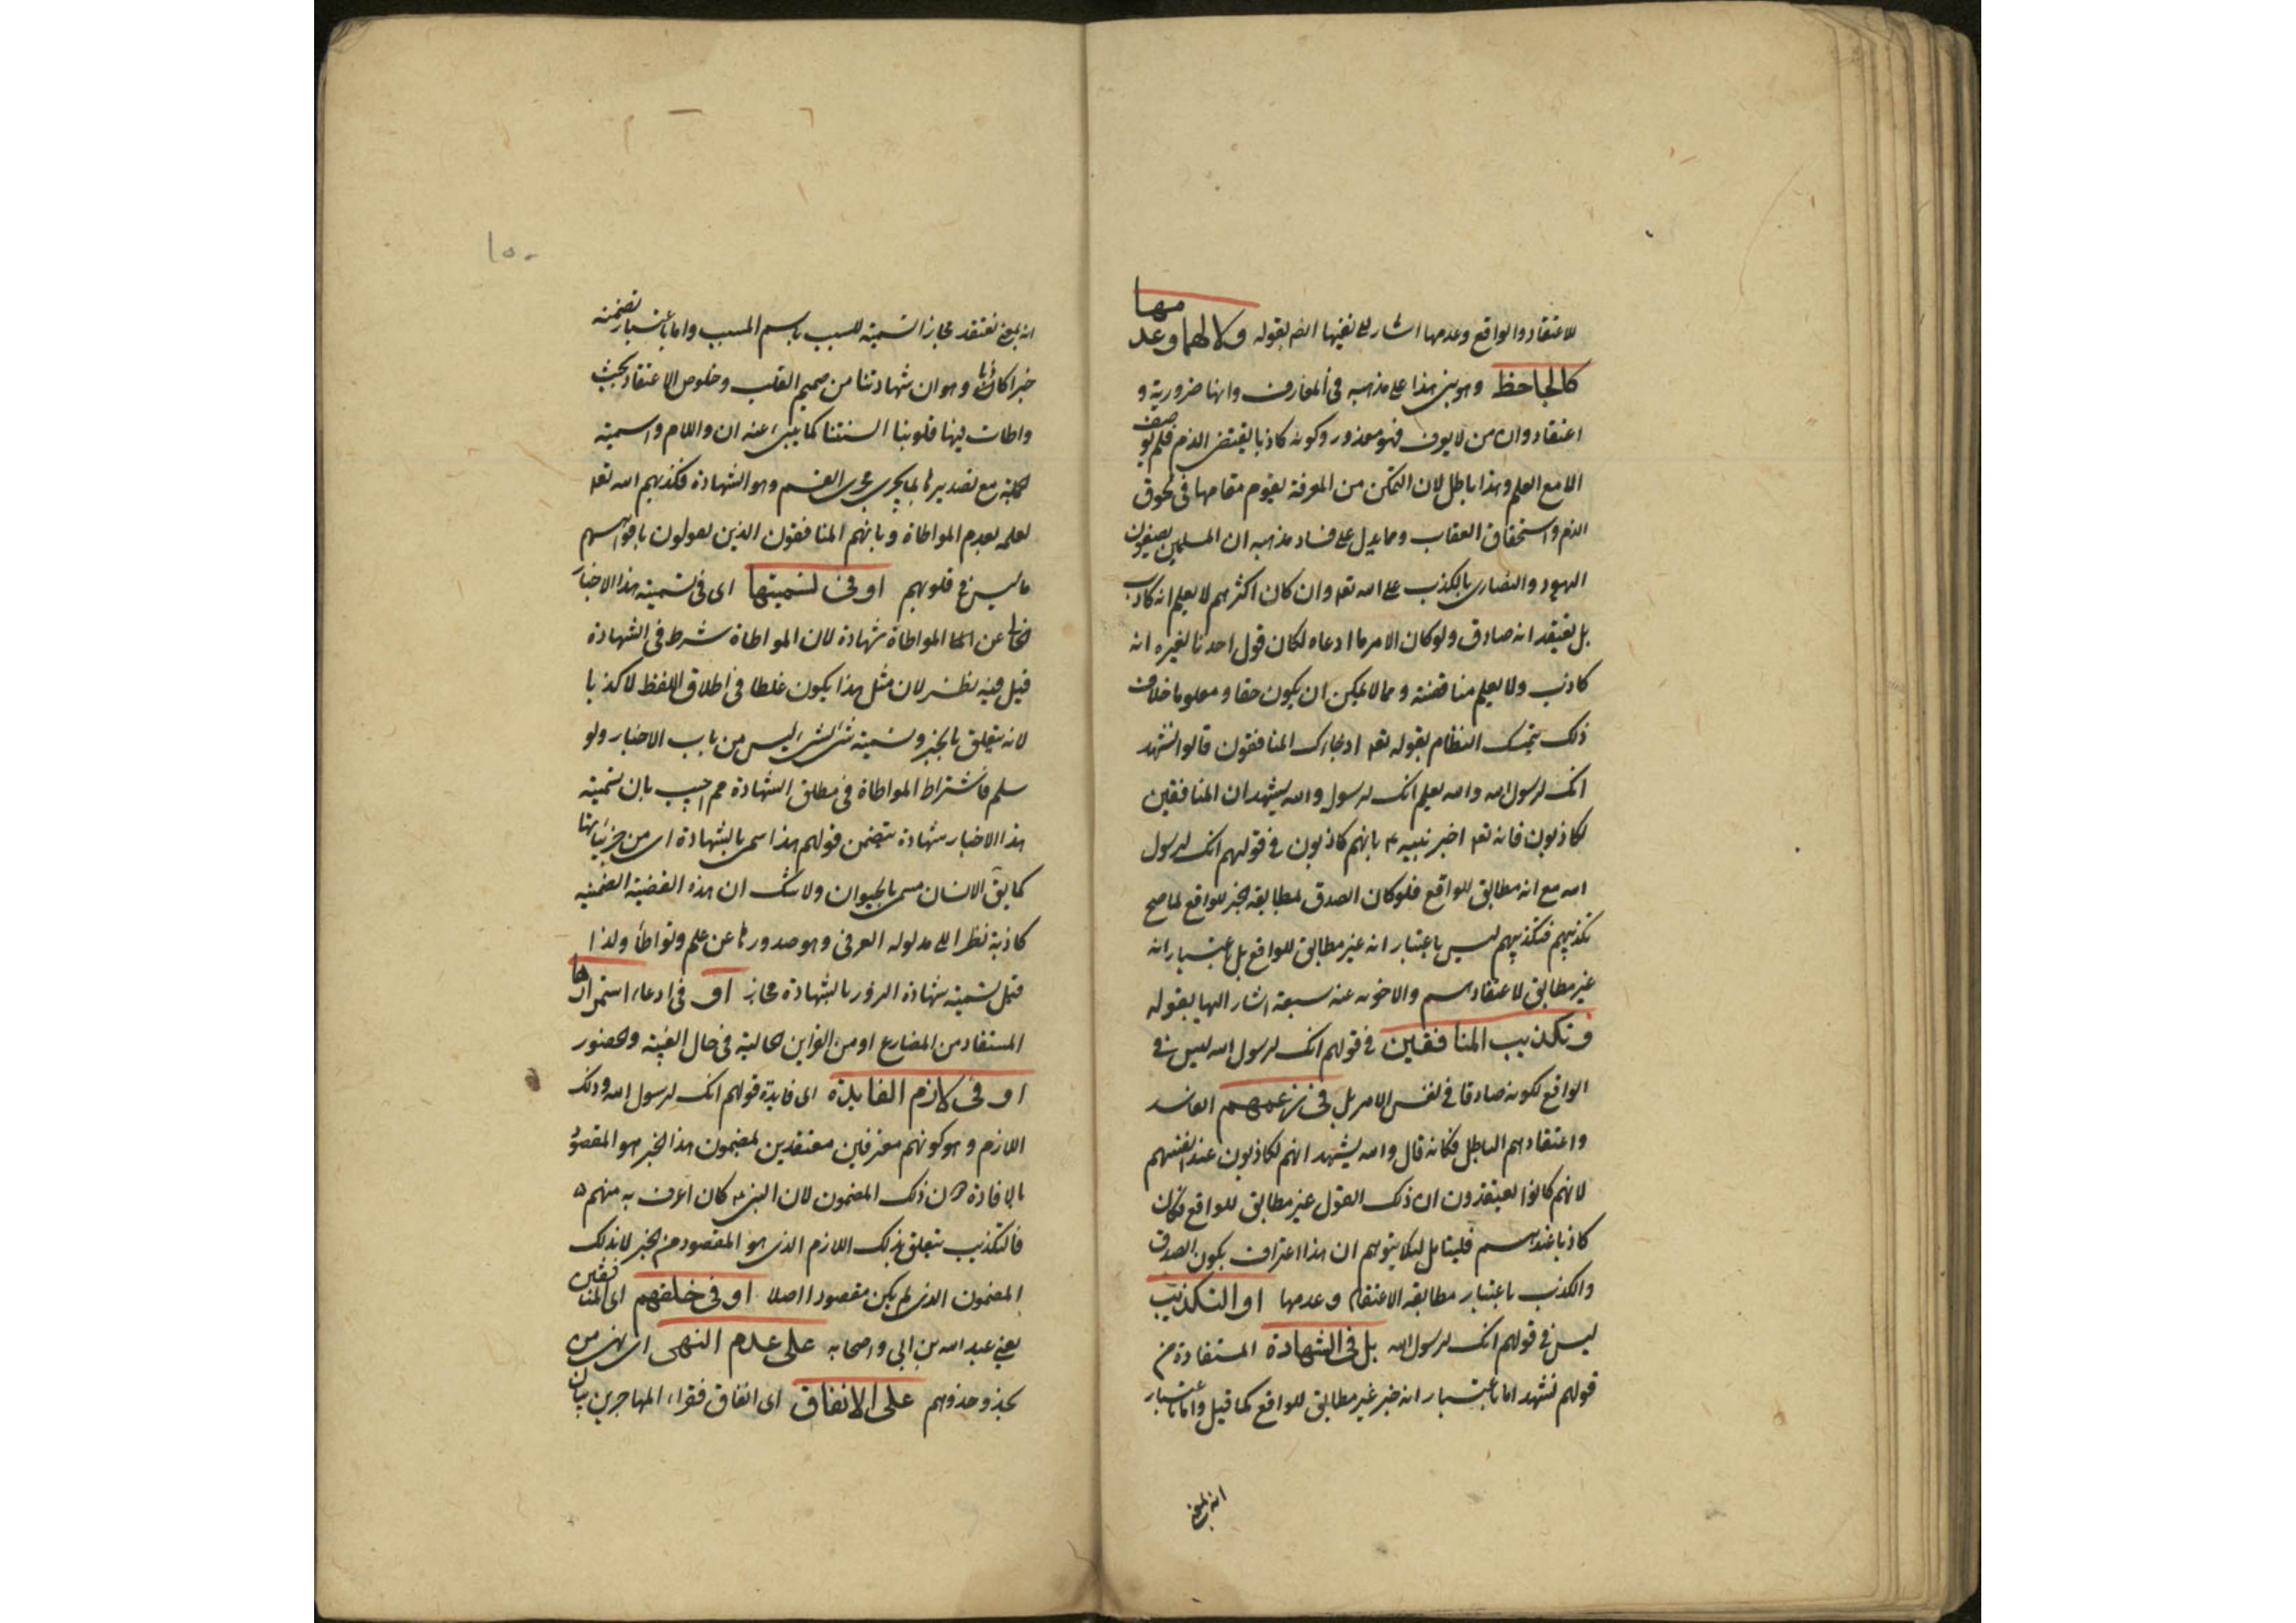 للاعتقاد والواقع وعدمها اشار الى نفيها ايضا بقوله ولا لهما وعدمها
كالجاحظ وهو بنى هذا على مذهبه فى المعارف وانها ضرورية و
اعتقاد وان من لا يعرف فهو معذور وكونه كاذبا يقتضى الذم فلم يوصف
الا مع العلم وهذا باطل لان التمكن من المعرفة يقوم مقامها فى لحوق
الذم واستحقاق العقاب ومما يدل على فساد مذهبه ان المسلمين يصفون
اليهود والنصارى بالكذب على الله تعا وان كان اكثرهم لا يعلم انه كاذب
بل يعتقد انه صادق ولو كان الامر ما ادعاه لكان قول احدنا لغيره انه
كاذب ولا يعلم مناقضته ومما لا يمكن ان يكون حقا ومعلوما خلاف
ذلك تمسك النظام بقوله تعا اذ جاءك المنافقون قالوا نشهد
انك لرسول الله والله يعلم انك لرسوله والله يشهد ان المنافقين
لكاذبون فانه تعا اخبر نبيه ع بانهم كاذبون فى قولهم انك لرسول
الله مع انه مطابق للواقع فلو كان الصدق لمطابقة الخبر للواقع لما صح
تكذيبهم فتكذيبهم ليس باعتبار انه غير مطابق للواقع بل باعتبار انه
غير مطابق لاعتقادهم والاجوبة عنه سبعة اشار اليها بقوله
وتكذيب المنافقين فى قولهم انك لرسول الله ليس فى
الواقع لكونه صادقا فى نفس الامر بل فى زعمهم الفاسد
واعتقادهم الباطل فكانه قال والله يشهد انهم لكاذبون عند انفسهم
لانهم كانوا يعتقدون ان ذلك القول غير مطابق للواقع فكان
كاذبا عندهم فليتامل لئلا يتوهم ان هذا اعتراف بكون الصدق
والكذب باعتبار مطابقة الاعتقاد وعدمها او التكذيب
ليس فى قولهم انك لرسول الله بل فى الشهادة المستفادة من
قولهم نشهد اما باعتبار انه خبر غير مطابق للواقع كما قيل واما باعتبار
انه بمعنى
١٥٠
انه بمعنى نعتقد مجاز التسمية للسبب باسم المسبب واما باعتبار تضمنه
خبرا كاذبا وهو ان شهادتنا من صميم القلب وخلوص الاعتقاد بحيث
واطات فيها قلوبنا السنتنا كما ينبئ عنه ان واللام واسمية
الجملة مع تصديرها بما يجرى مجرى القسم وهو الشهادة فكذبهم الله تعا
لعلمه بعدم المواطاة وبانهم المنافقون الذين يقولون بافواههم
ما ليس فى قلوبهم او فى تسميتها اى فى تسمية هذا الاخبار
الخالى عن المواطاة شهادة لان المواطاة شرط فى الشهادة
قيل فيه نظر لان مثل هذا يكون غلطا فى اطلاق اللفظ لا كذبا
لانه يتعلق بالخبر وتسمية شئ بشئ ليس من باب الاخبار ولو
سلم فاشتراط المواطاة فى مطلق الشهادة مم اجيب بان تسمية
هذا الاخبار شهادة يتضمن قولهم هذا سمى بالشهادة اى من جزئياتها
كما يق الانسان مسمى بالحيوان ولا شك ان هذه القضية الضمنية
كاذبة نظرا الى مدلوله العرفى وهو صدورها عن علم وتواطأ ولذا
قيل تسمية شهادة الزور بالشهادة مجاز او فى ادعاء استمرارها
المستفاد من المضارع او من القراين الحالية فى حال الغيبة والحضور
او فى لازم الفايدة اى فايدة قولهم انك لرسول الله وذلك
اللازم وهو كونهم معترفين معتقدين لمضمون هذا الخبر هو المقصود
بالافادة دون ذلك المضمون لان النبى ع كان اعرف به منهم
فالتكذيب يتعلق بذلك اللازم الذى هو المقصود من الخبر لا بذلك
المضمون الذى لم يكن مقصودا اصلا او فى حلفهم اى المنافقين
يعنى عبد الله بن ابى واصحابه على عدم النهى اى نهى من
يحذو حذوهم على الانفاق اى انفاق فقراء المهاجرين بيان